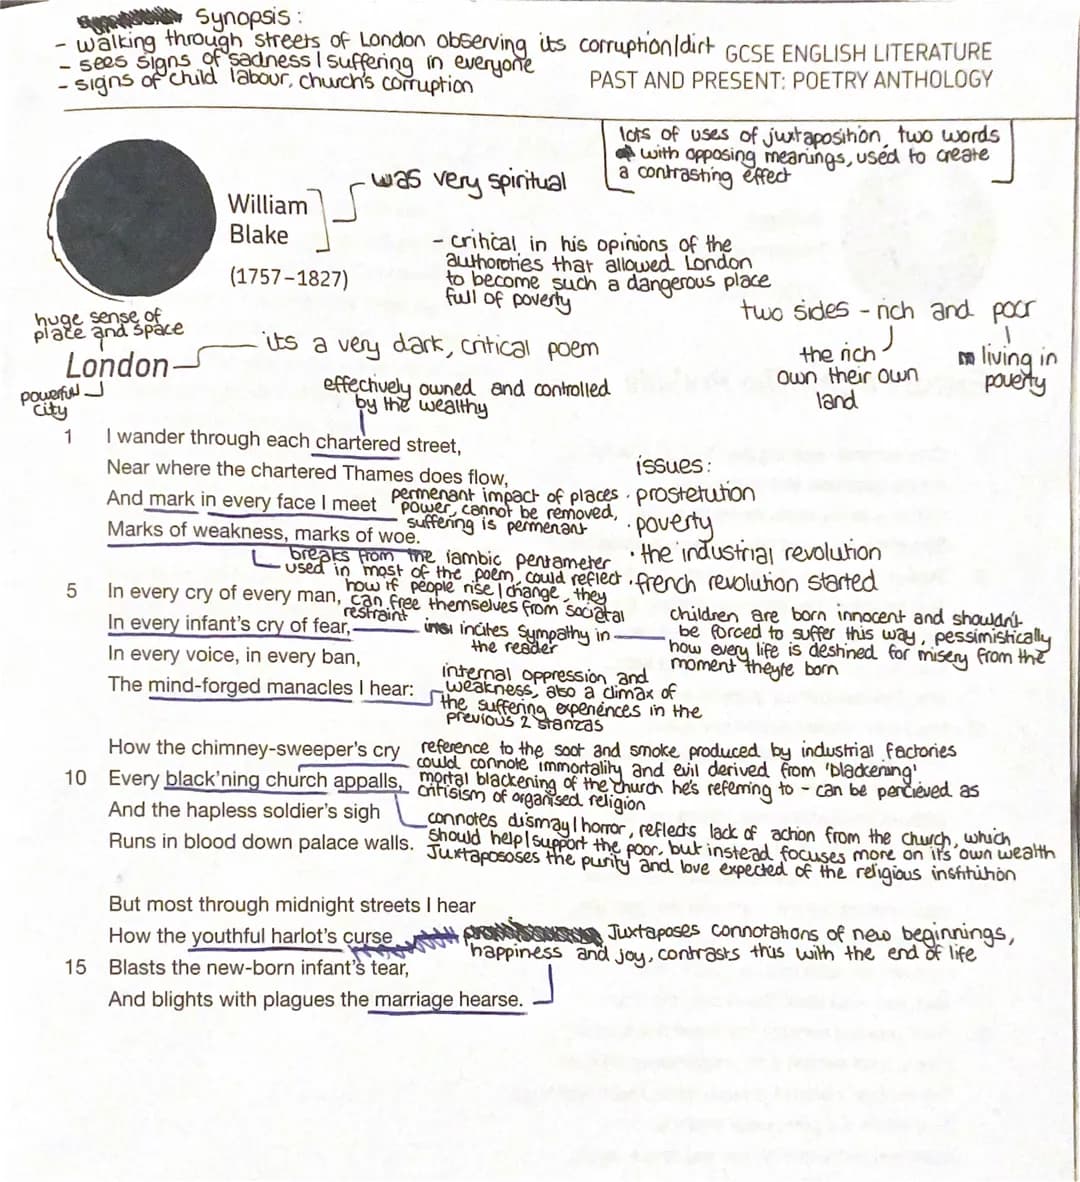 Synopsis:
- walking through streets of London observing its corruption/dirt
- sees signs of sadness/suffering in everyone
- signs of child labour, church's corruption
GCSE ENGLISH LITERATURE
PAST AND PRESENT: POETRY ANTHOLOGY
lots of uses of juxtaposition, two words
with opposing meanings, used to create
a contrasting effect
William
Blake
(1757–1827)
was very spiritual
- critical in his opinions of the
authoroties that allowed London
to become such a dangerous place
full of poverty
two sides - rich and poor
the rich
own their own
land
living in
poverty
huge sense of
place and space
London
powerful
city
its a very dark, critical poem
effectively owned and controlled
by the wealthy
1 I wander through each chartered street,
Near where the chartered Thames does flow,
And mark in every face I meet
Marks of weakness, marks of woe.
permenant impact of places
power, cannot be removed,
suffering is permenant
issues:
· prostetution
· poverty
· the industrial revolution
· french revolution started
breaks from the iambic pentameter
used in most of the poem, could reflect
how if people rise/change, they
can free themselves from societal
restraint
5 In every cry of every man,
In every infant's cry of fear,
In every voice, in every ban,
The mind-forged manacles I hear:
incites sympathy in
the reader
children are born innocent and shouldn't
be forced to suffer this way, pessimistically
how every life is destined for misery from the
moment theyre born
internal oppression and
weakness, also a climax of
the suffering experiences in the
previous 2 stanzas
How the chimney-sweeper's cry
10 Every black'ning church appalls,
And the hapless soldier's sigh
Runs in blood down palace walls.
reference to the soot and smoke produced by industrial factories
could connote immortality and evil derived from 'blackening'
mortal blackening of the church he's referring to - can be percieved as
critisism of organised religion
connotes dismay/horror, reflects lack of action from the church, which
should help/support the poor, but instead focuses more on its own wealth
Juxtapososes the purity and love expected of the religious institution
But most through midnight streets I hear
How the youthful harlot's curse
15 Blasts the new-born infant's tear,
And blights with plagues the marriage hearse.
Juxtaposes connotations of new beginnings,
happiness and joy, contrasts this with the end of life